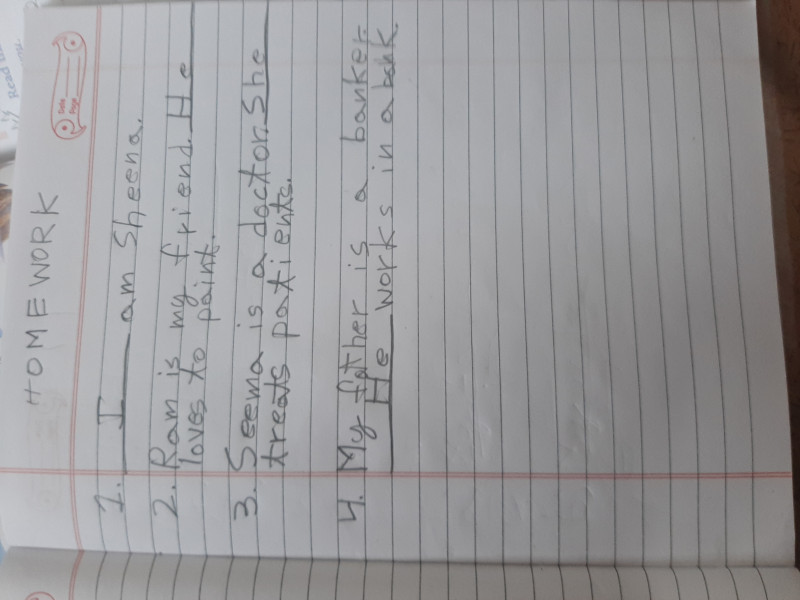 HOMEWORK
Date
Page
1. I am Sheena.
2. Ram is my friend. He
loves to paint.
3. Seema is a doctor. She
treats patients.
4. My father is a banker.
He works in a bank